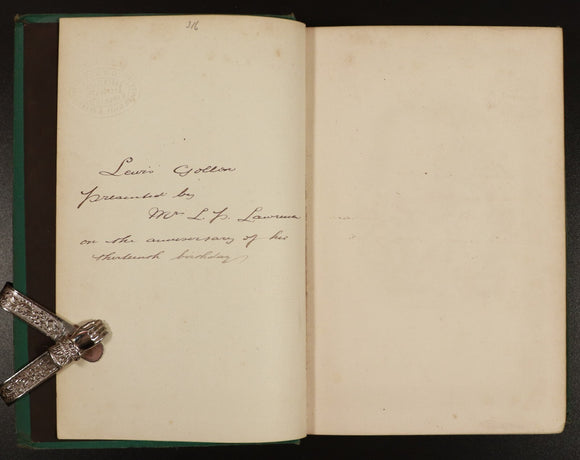 3/6
Lewis Gollon
presented by
Mr L. P. Lawrence
on the anniversary of his
thirteenth birthday